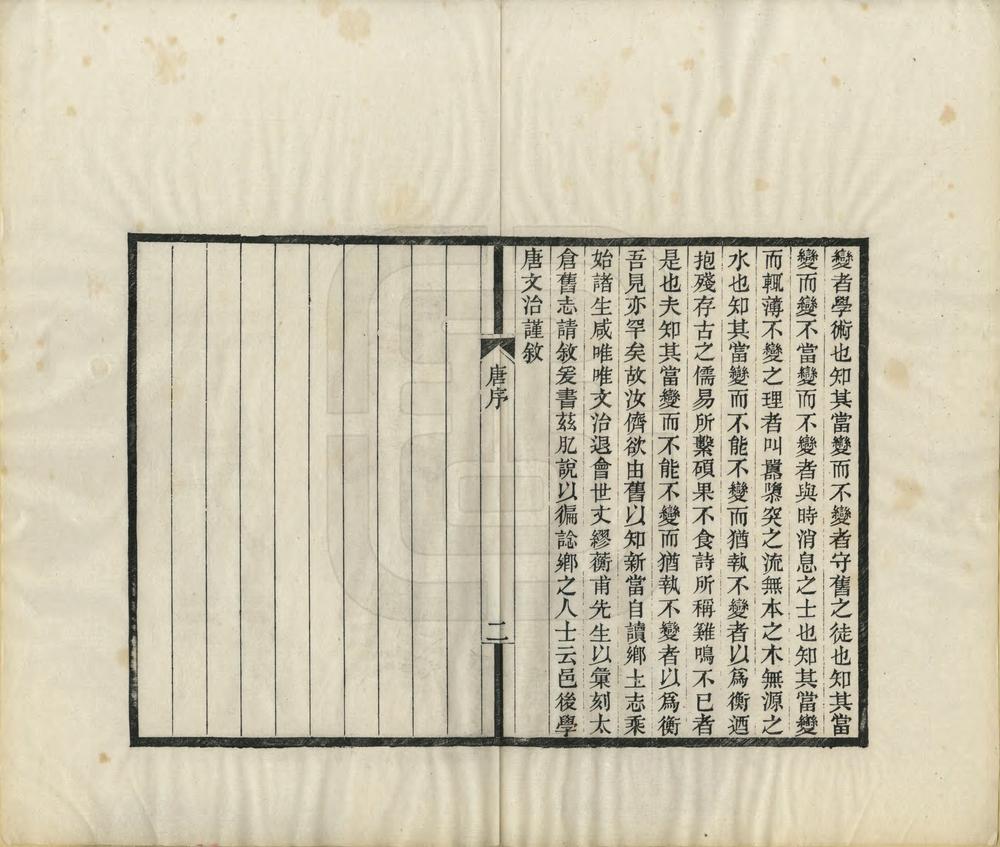 變者學術也知其當變而不變者守舊之徒也知其當
變而變不當變而不變者與時消息之士也知其當變
而輒薄不變之理者叫囂隳突之流無本之木無源之
水也知其當變而不能不變而猶執不變者以爲衡迺
抱殘存古之儒易所繫碩果不食詩所稱雞鳴不已者
是也夫知其當變而不能不變而猶執不變者以爲衡
吾見亦罕矣故汝儕欲由舊以知新當自讀鄉土志乘
始諸生咸唯唯文治退會世丈繆蘅甫先生以彙刻太
倉舊志請敘爰書茲凡說以徧諗鄉之人士云邑後學
唐文治謹敘
唐序
二